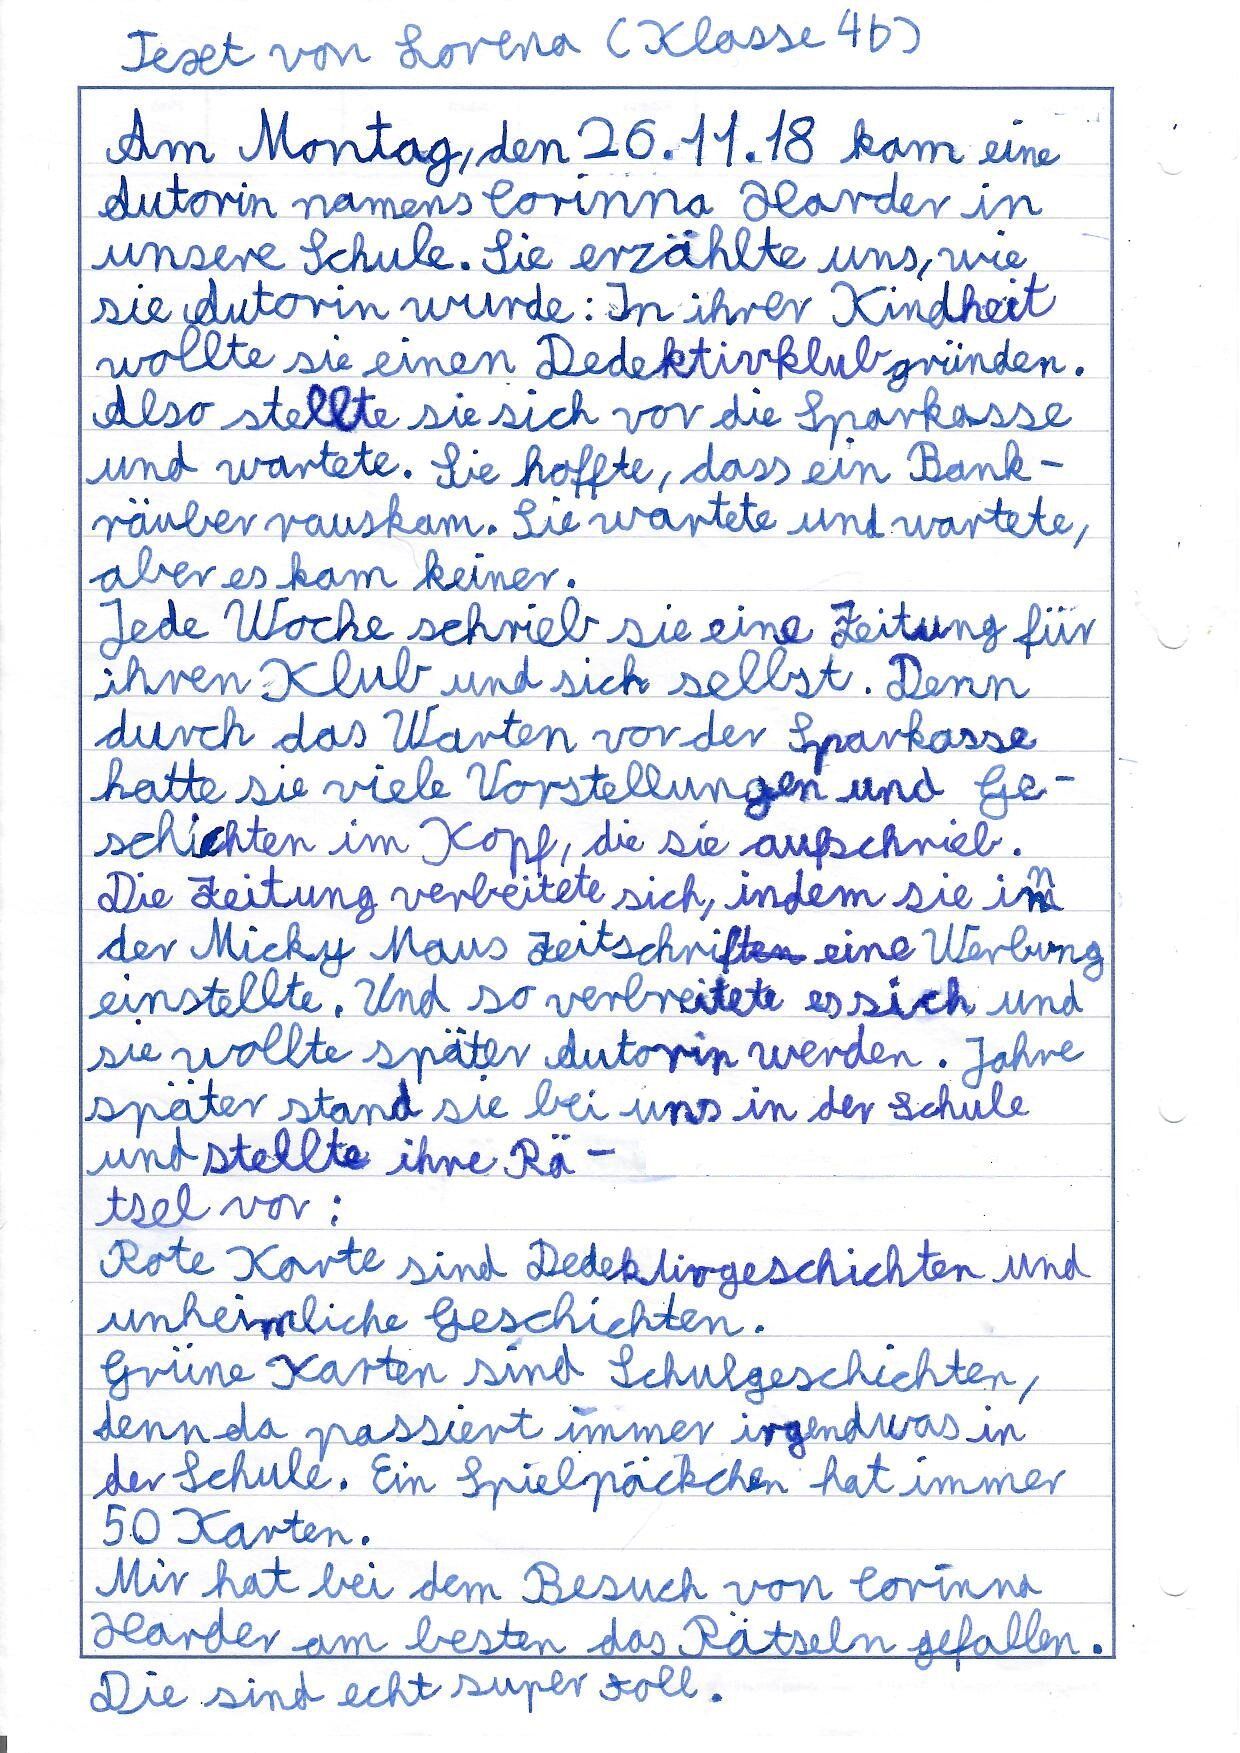 Text von Lorena (Klasse 4b)
Am Montag, den 26.11.18 kam eine
Autorin namens Corinna Harder in
unsere Schule. Sie erzählte uns, wie
sie Autorin wurde: In ihrer Kindheit
wollte sie einen Dedektivklub gründen.
Also stellte sie sich vor die Sparkasse
und wartete. Sie hoffte, dass ein Bank-
räuber rauskam. Sie wartete und wartete,
aber es kam keiner.
Jede Woche schrieb sie eine Zeitung für
ihren Klub und sich selbst. Denn
durch das Warten vor der Sparkasse
hatte sie viele Vorstellungen und Ge-
schichten im Kopf, die sie aufschrieb.
Die Zeitung verbeitete sich, indem sie in
der Micky Maus Zeitschriften eine Werbung
einstellte. Und so verbreitete es sich und
sie wollte später Autorin werden. Jahre
später stand sie bei uns in der Schule
und stellte ihre Rä-
tsel vor:
Rote Karte sind Dedektivgeschichten und
unheimliche Geschichten.
Grüne Karten sind Schulgeschichten,
denn da passiert immer irgendwas in
der Schule. Ein Spielpäckchen hat immer
50 Karten.
Mir hat bei dem Besuch von Corinna
Harder am besten das Rätseln gefallen.
Die sind echt super toll.